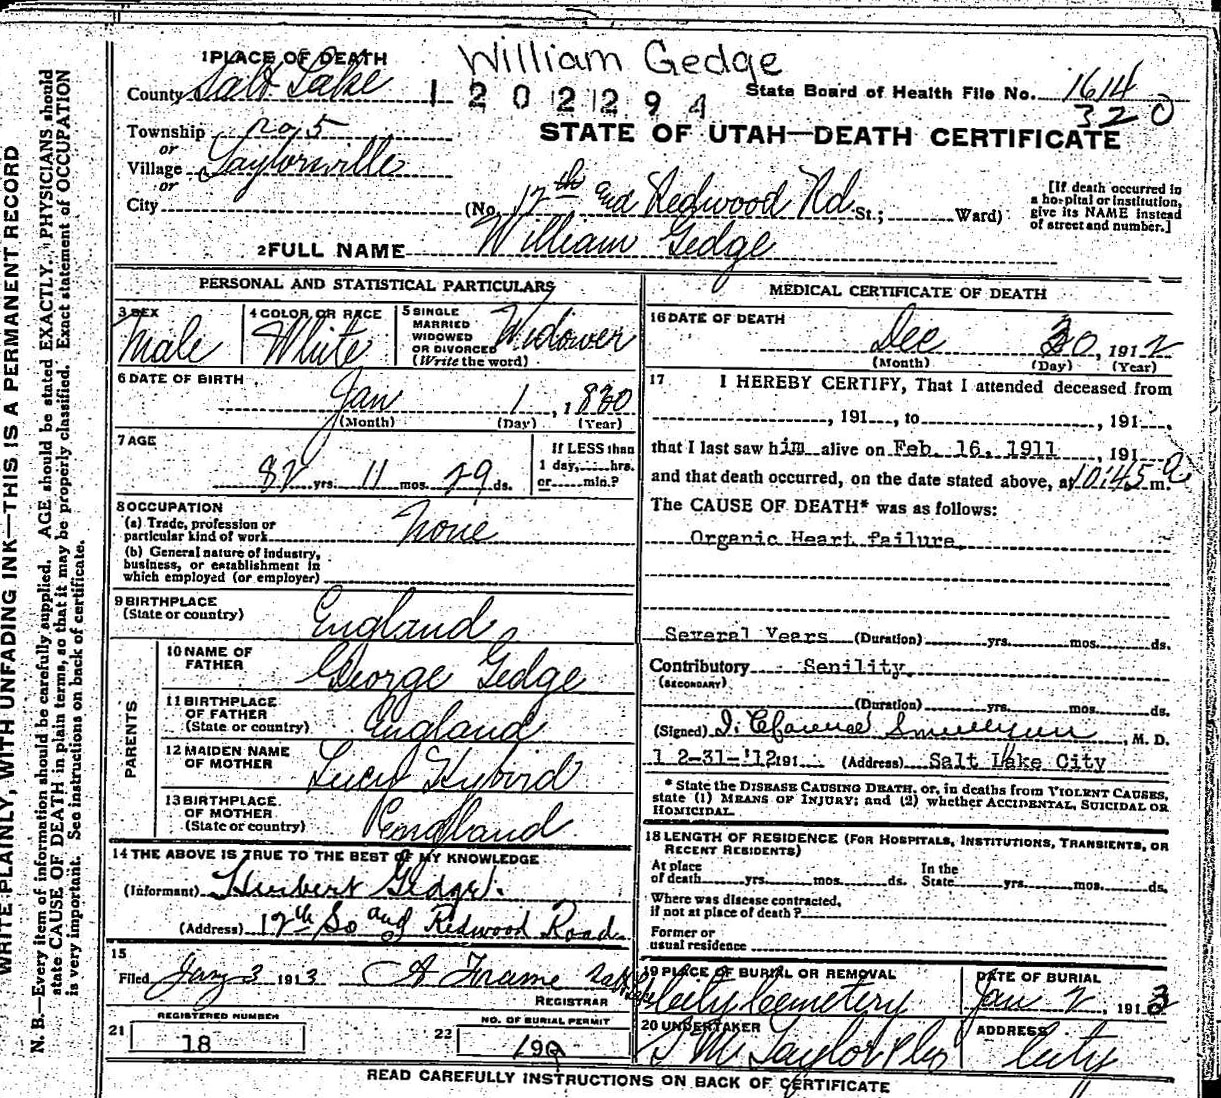 William Gedge
1 PLACE OF DEATH
County Salt Lake
1202294
State Board of Health File No. 1614
320
Township No 5
or
Village Taylorsville
or
City
STATE OF UTAH—DEATH CERTIFICATE
(No. 12th and Redwood Rd. St.; Ward)
[If death occurred in
a hospital or institution,
give its NAME instead
of street and number.]
2 FULL NAME William Gedge
PERSONAL AND STATISTICAL PARTICULARS
3 SEX
Male
4 COLOR OR RACE
White
5 SINGLE
MARRIED
WIDOWED
OR DIVORCED
(Write the word)
Widower
6 DATE OF BIRTH
Jan 1, 1830
(Month) (Day) (Year)
7 AGE
82 yrs. 11 mos. 29 ds.
If LESS than
1 day, hrs.
or min.?
8 OCCUPATION
(a) Trade, profession or
particular kind of work
None
(b) General nature of industry,
business, or establishment in
which employed (or employer)
9 BIRTHPLACE
(State or country)
England
PARENTS
10 NAME OF
FATHER
George Gedge
11 BIRTHPLACE
OF FATHER
(State or country)
England
12 MAIDEN NAME
OF MOTHER
Lucy
13 BIRTHPLACE
OF MOTHER
(State or country)
England
14 THE ABOVE IS TRUE TO THE BEST OF MY KNOWLEDGE
(Informant) Herbert Gedge.
(Address) 12th So and Redwood Road
15
Filed Jany 3 1913 A Frame
REGISTRAR
REGISTERED NUMBER
21 18
NO. OF BURIAL PERMIT
22
MEDICAL CERTIFICATE OF DEATH
16 DATE OF DEATH
Dec 30, 1912
(Month) (Day) (Year)
17 I HEREBY CERTIFY, That I attended deceased from
, 191 , to , 191 ,
that I last saw him alive on Feb. 16, 1911 , 191
and that death occurred, on the date stated above, at 10:45 a m.
The CAUSE OF DEATH* was as follows:
Organic Heart failure
Several Years (Duration) yrs. mos. ds.
Contributory Senility
(SECONDARY)
(Duration) yrs. mos. ds.
(Signed) , M. D.
12-31-'12 191 (Address) Salt Lake City
* State the DISEASE CAUSING DEATH, or, in deaths from VIOLENT CAUSES,
state (1) MEANS OF INJURY; and (2) whether ACCIDENTAL, SUICIDAL OR
HOMICIDAL.
18 LENGTH OF RESIDENCE (FOR HOSPITALS, INSTITUTIONS, TRANSIENTS, OR
RECENT RESIDENTS)
At place
of death yrs. mos. ds.
In the
State yrs. mos. ds.
Where was disease contracted,
if not at place of death?
Former or
usual residence
19 PLACE OF BURIAL OR REMOVAL
City Cemetery
DATE OF BURIAL
Jan 2, 1913
20 UNDERTAKER
S M Taylor
ADDRESS
City
READ CAREFULLY INSTRUCTIONS ON BACK OF CERTIFICATE
WRITE PLAINLY, WITH UNFADING INK—THIS IS A PERMANENT RECORD
N. B.—Every item of information should be carefully supplied. AGE should be stated EXACTLY. PHYSICIANS should
state CAUSE OF DEATH in plain terms, so that it may be properly classified. Exact statement of OCCUPATION
is very important. See instructions on back of certificate.